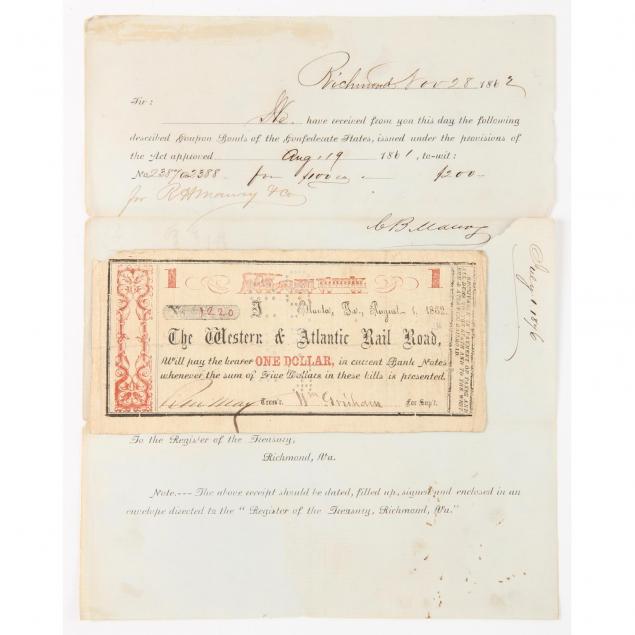 Richmond Nov 28 1862
Sir:
We have received from you this day the following
described Coupon Bonds of the Confederate States, issued under the provisions
of the Act approved Aug. 19 1861, to-wit:
No 2387 to 2388 for $100 ea $200
for R H Maury & Co
C B Maury
July 1 1876
1 1
No. 1220 Atlanta, Ga., August 1, 1862
The Western & Atlantic Rail Road,
Will pay the bearer ONE DOLLAR, in current Bank Notes
whenever the sum of Five Dollars in these bills is presented.
Treas'r. Wm For Sup't.
To the Register of the Treasury,
Richmond, Va.
Note.--- The above receipt should be dated, filled up, signed and enclosed in an
envelope directed to the " Register of the Treasury, Richmond, Va."